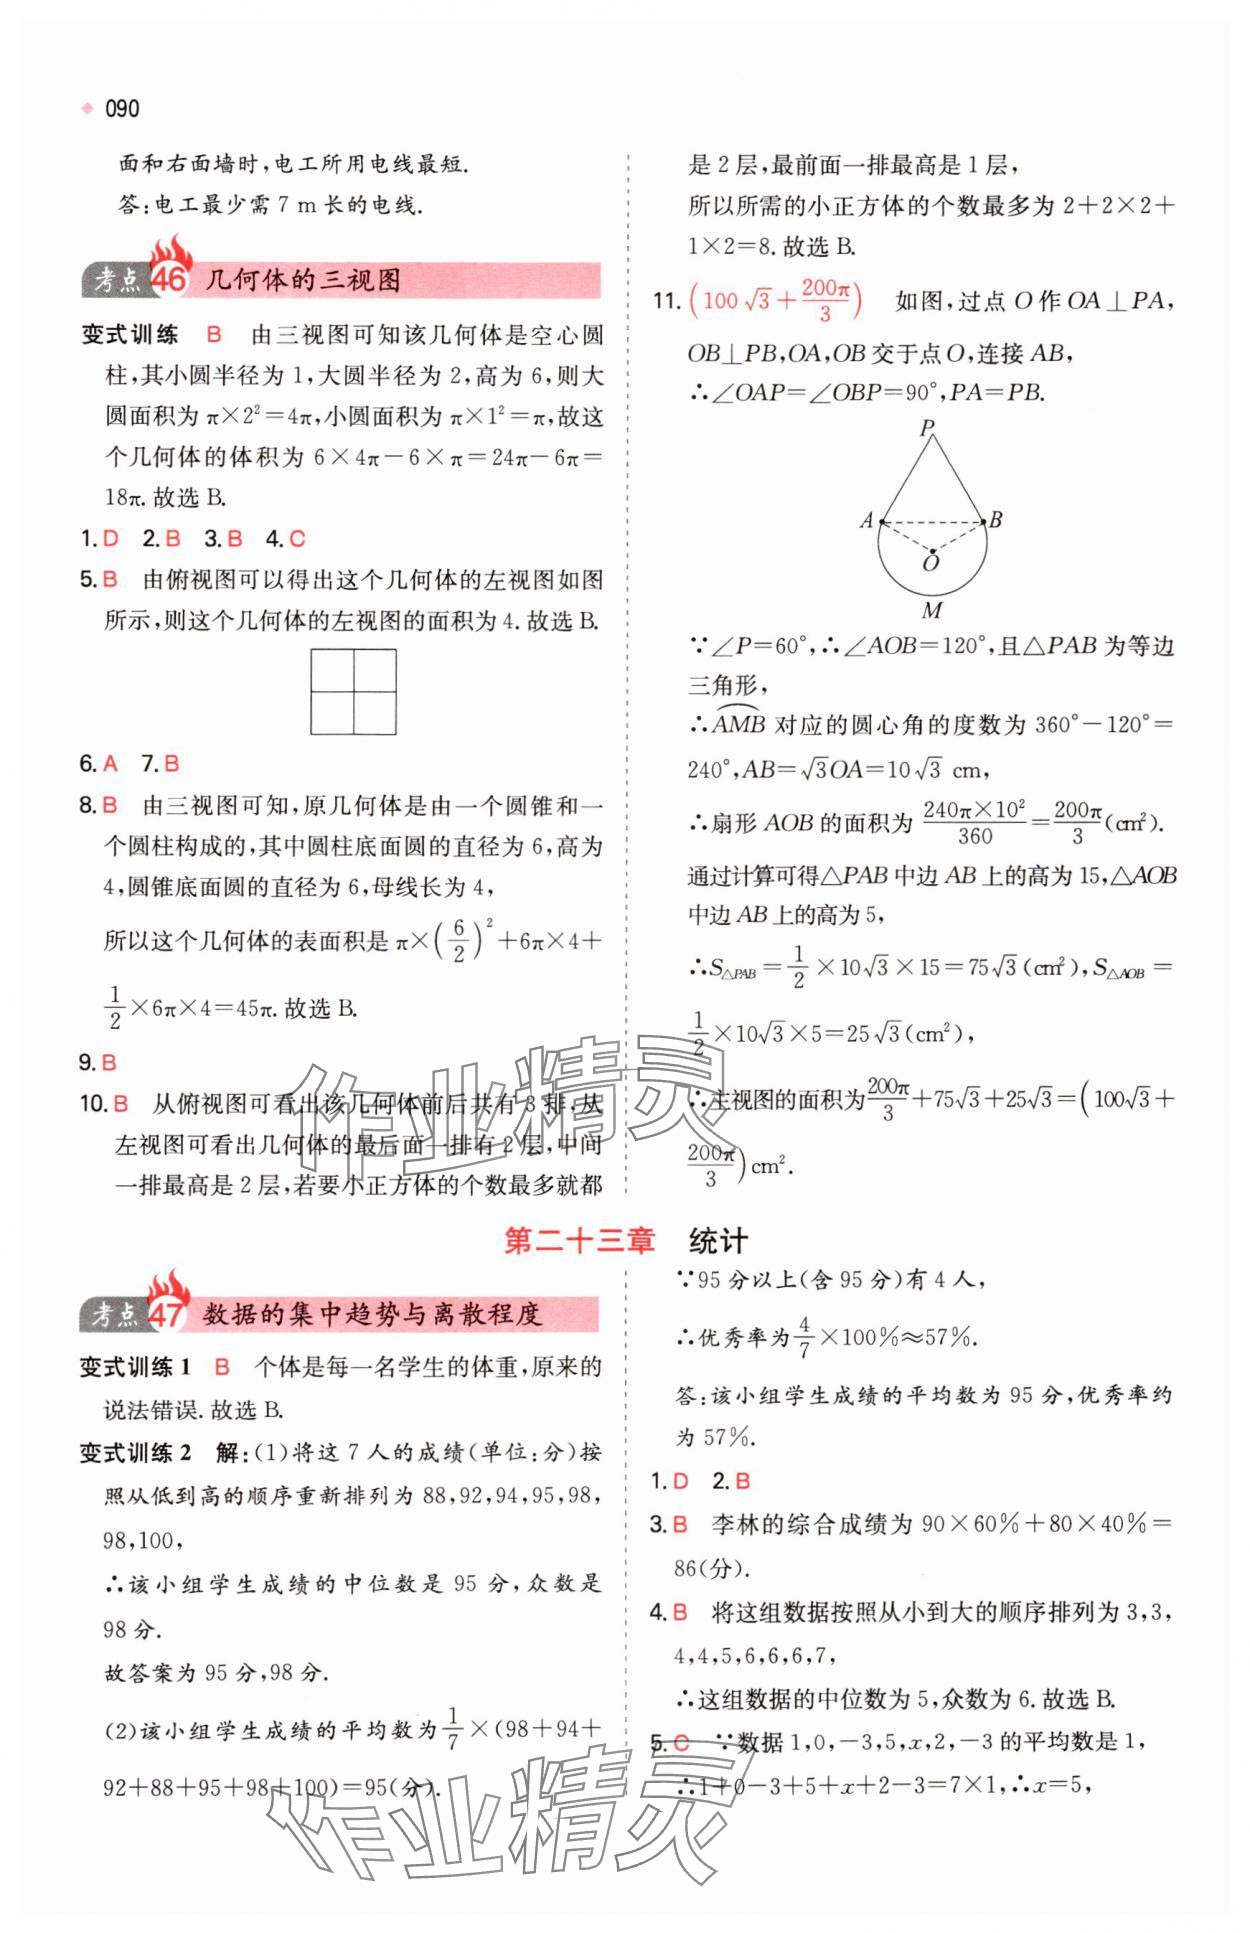 090
面和右面墙时,电工所用电线最短.
答:电工最少需 7 m 长的电线.
考点 46 几何体的三视图
变式训练 B 由三视图可知该几何体是空心圆
柱,其小圆半径为 1,大圆半径为 2,高为 6,则大
圆面积为 π×2²=4π,小圆面积为 π×1²=π,故这
个几何体的体积为 6×4π-6×π=24π-6π=
18π. 故选 B.
1. D 2. B 3. B 4. C
5. B 由俯视图可以得出这个几何体的左视图如图
所示,则这个几何体的左视图的面积为 4. 故选 B.
6. A 7. B
8. B 由三视图可知,原几何体是由一个圆锥和一
个圆柱构成的,其中圆柱底面圆的直径为 6,高为
4,圆锥底面圆的直径为 6,母线长为 4,
所以这个几何体的表面积是 π×(6/2)²+6π×4+
1/2×6π×4=45π. 故选 B.
9. B
10. B 从俯视图可看出该几何体前后共有 3 排,从
左视图可看出几何体的最后面一排有 2 层,中间
一排最高是 2 层,若要小正方体的个数最多就都
是 2 层,最前面一排最高是 1 层,
所以所需的小正方体的个数最多为 2+2×2+
1×2=8. 故选 B.
11. (100√3+200π/3) 如图,过点 O 作 OA⊥PA,
OB⊥PB,OA,OB 交于点 O,连接 AB,
∴∠OAP=∠OBP=90°,PA=PB.
P
A
B
O
M
∵∠P=60°,∴∠AOB=120°,且△PAB 为等边
三角形,
∴⌒AMB 对应的圆心角的度数为 360°-120°=
240°,AB=√3OA=10√3 cm,
∴扇形 AOB 的面积为 240π×10²/360=200π/3(cm²).
通过计算可得△PAB 中边 AB 上的高为 15,△AOB
中边 AB 上的高为 5,
∴S△PAB=1/2×10√3×15=75√3(cm²),S△AOB=
1/2×10√3×5=25√3(cm²),
∴主视图的面积为200π/3+75√3+25√3=(100√3+
200π/3)cm².
第二十三章 统计
考点 47 数据的集中趋势与离散程度
变式训练 1 B 个体是每一名学生的体重,原来的
说法错误. 故选 B.
变式训练 2 解:(1)将这 7 人的成绩(单位:分)按
照从低到高的顺序重新排列为 88,92,94,95,98,
98,100,
∴该小组学生成绩的中位数是 95 分,众数是
98 分.
故答案为 95 分,98 分.
(2)该小组学生成绩的平均数为1/7×(98+94+
92+88+95+98+100)=95(分).
∵95 分以上(含 95 分)有 4 人,
∴优秀率为4/7×100%≈57%.
答:该小组学生成绩的平均数为 95 分,优秀率约
为 57%.
1. D 2. B
3. B 李林的综合成绩为 90×60%+80×40%=
86(分).
4. B 将这组数据按照从小到大的顺序排列为 3,3,
4,4,5,6,6,6,7,
∴这组数据的中位数为 5,众数为 6. 故选 B.
5. C ∵数据 1,0,-3,5,x,2,-3 的平均数是 1,
∴1+0-3+5+x+2-3=7×1,∴x=5,
作业精灵
作业精灵